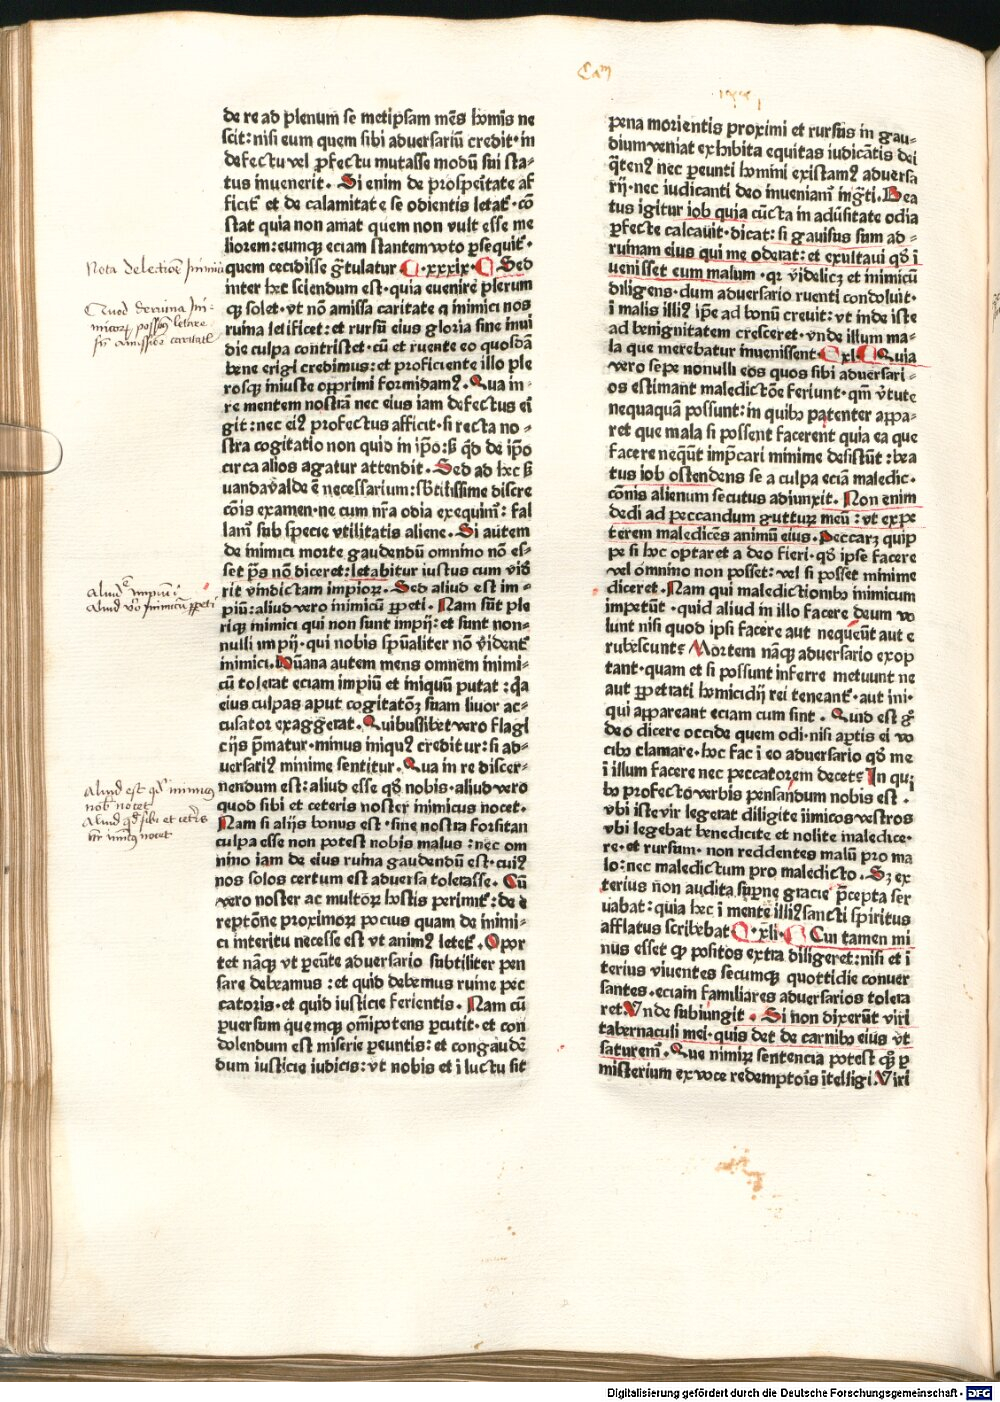 de re ad plenum se metipsam mēs homīs ne
scit: nisi eum quem sibi adversariū credit· in
defectu vel ꝓfectu mutasse modū sui sta⸗
tus invenerit. Si enim de prosperitate af
ficit᷑ et de calamitate se odientis letat᷑· cō
stat quia non amat quem non vult esse me
liorem: eumqꝫ eciam stantem voto ꝑsequit᷑·
quem cecidisse g̃tulatur ·xxxix· Sed
inter hec sciendum est· quia evenire plerum
qꝫ solet· vt nō amissa caritate ⁊ inimici nos
ruina letificet: et rursū eius gloria sine invi
die culpa contristet· cū et ruente eo quosdā
bene erigi credimus: et proficiente illo ple
rosqꝫ iniuste opprimi formidamꝰ. Qua in⸗
re mentem nostrā nec eius iam defectus eri
git: nec eiꝰ profectus afficit· si recta no⸗
stra cogitatio non quid in ip̄o: sꝫ qd̄ de ip̄o
circa alios agatur attendit. Sed ad hec ser
vanda valde ē necessarium: sb̄tilissime discre
cōis examen· ne cum nr̄a odia exequimur: fal
lamur sub specie vtilitatis aliene. Si autem
de inimici morte gaudendū omnino nō es⸗
set ps̄ nō diceret: letabitur iustus cum vide
rit vindictam impioꝝ. Sed aliud est im⸗
piū: aliud vero inimicū ꝑpeti. Nam sūt ple
riqꝫ inimici qui non sunt impij: et sunt non⸗
nulli impij· qui nobis spūaliter nō vident᷑
inimici. Hūana autem mens omnem inimi⸗
cū tolerat eciam impiū et iniquū putat: qa
eius culpas aput cogitatōꝫ suam livor ac⸗
cusator exaggerat. Quibuslibet vero flagi
cijs p̄matur· minus iniquꝰ creditur: si ad⸗
versariꝰ minime sentitur. Qua in re discer⸗
nendum est: aliud esse qd̄ nobis· aliud vero
quod sibi et ceteris noster inimicus nocet.
Nam si alijs bonus est· sine nostra forsitan
culpa esse non potest nobis malus: nec om
nino iam de eius ruina gaudendū est· cuiꝰ
nos solos certum est adversa tolerasse. Cū
vero noster ac multoꝝ hostis perimit᷑: de e
reptōne proximoꝝ pocius quam de inimi⸗
ci interitu necesse est vt animꝰ letet᷑. Opor
tet nāqꝫ vt pereūte adversario subtiliter pen
sare debeamus: et quid debemus ruine pec
catoris· et quid iusticie ferientis. Nam cū
ꝑversum quemqꝫ om̄ipotens ꝑcutit· et con
dolendum est miserie ꝑeuntis: et congaudē
dum iusticie iudicis: vt nobis et i luctu sit
pena morientis proximi et rursus in gau⸗
dium veniat exhibita equitas iudicātis dei
q̄tenꝰ nec pereunti homini existamꝰ adversa
rij· nec iudicanti deo inveniamur ingrati. Bea
tus igitur iob quia cūcta in adv̄sitate odia
ꝑfecte calcavit· dicat: si gavisus sum ad⸗
ruinam eius qui me oderat: et exultavi qd̄ i
venisset eum malum· qr videlicꝫ et inimicū
diligens· dum adversario ruenti condoluit·
i malis illiꝰ ip̄e ad bonū crevit: vt inde iste
ad benignitatem cresceret· vnde illum ma⸗
la que merebatur invenissent xl. Quia
vero sepe nonulli eos quos sibi adversari⸗
os estimant maledictōe feriunt· qm̄ v̄tute
nequaquā possunt: in quibꝫ patenter appa⸗
ret que mala si possent facerent quia ea que
facere nequeūt imp̄cari minime desistūt: bea
tus iob ostendens se a culpa eciā maledic⸗
cōnis alienum secutus adiunxit. Non enim
dedi ad peccandum guttur meū: vt expe
terem maledicēs animū eius. Peccarꝫ quip
pe si hoc optaret a deo fieri· qd̄ ipse facere
vel omnino non posset: vel si posset minime
diceret. Nam qui maledictionibꝫ inimicum
impetūt· quid aliud in illo facere deum vo
lunt nisi quod ipsi facere aut nequeūt aut e
rubescunt: Mortem nāqꝫ adversario exop
tant· quam et si possunt inferre metuunt ne
aut ꝑpetrati homicidij rei teneant᷑· aut ini⸗
qui appareant eciam cum sint. Quid est g̊
deo dicere occide quem odi· nisi aꝑtis ei vo
cibꝫ clamare· hoc fac i eo adversario qd̄ me
i illum facere nec peccatorem decet: In qui
bꝫ profecto verbis pensandum nobis est.
vbi iste vir legerat diligite iimicos vestros
vbi legebat benedicite et nolite maledice⸗
re· et rursum· non reddentes malū pro ma
lo: nec maledictum pro maledicto. Sꝫ ex
terius non audita sup̄ne gracie p̄cepta ser
vabat: quia hec i mente illiꝰ sancti spiritus
afflatus scribebat ·xli· Cui tamen mi
nus esset qꝫ positos extra diligeret: nisi et i
terius viventes secumqꝫ quottidie conver
santes· eciam familiares adversarios tolera
ret. Vnde subiungit. Si non dixerūt viri
tabernaculi mei· quis det de carnibꝫ eius vt
saturemur. Que nimirꝫ sentencia potest qꝫ ꝑ
misterium ex voce redemptoris itelligi. Viri
Aliud est impium
Aliud vero inimicum perpeti
Aliud est quod inimicus
nobis nocet
Aliud quod sibi et ceteris
Digitalisierung gefördert durch die Deutsche Forschungsgemeinschaft - DFG